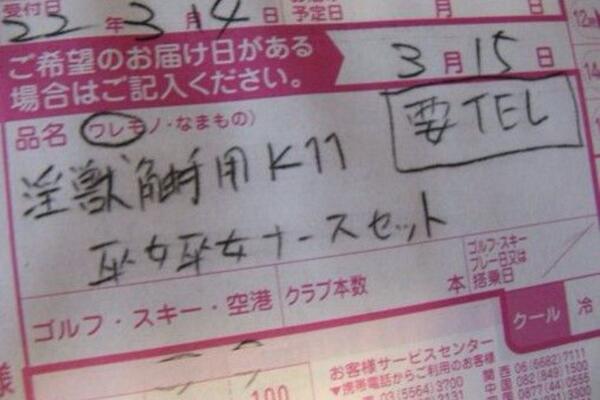 受付日 22年3月14日
予定日
ご希望のお届け日がある
場合はご記入ください。
3月15日
品名 (ワレモノ・なまもの)
要TEL
淫獣触手用K11
巫女巫女ナースセット
ゴルフ・スキー・空港
クラブ本数 本
ゴルフ・スキー
プレー日又は
搭乗日
クール
冷
様
お客様サービスセンター
▼携帯電話からご利用のお客様
03(5564)3700
関西 06(6682)7111
中国 082(849)1500
100